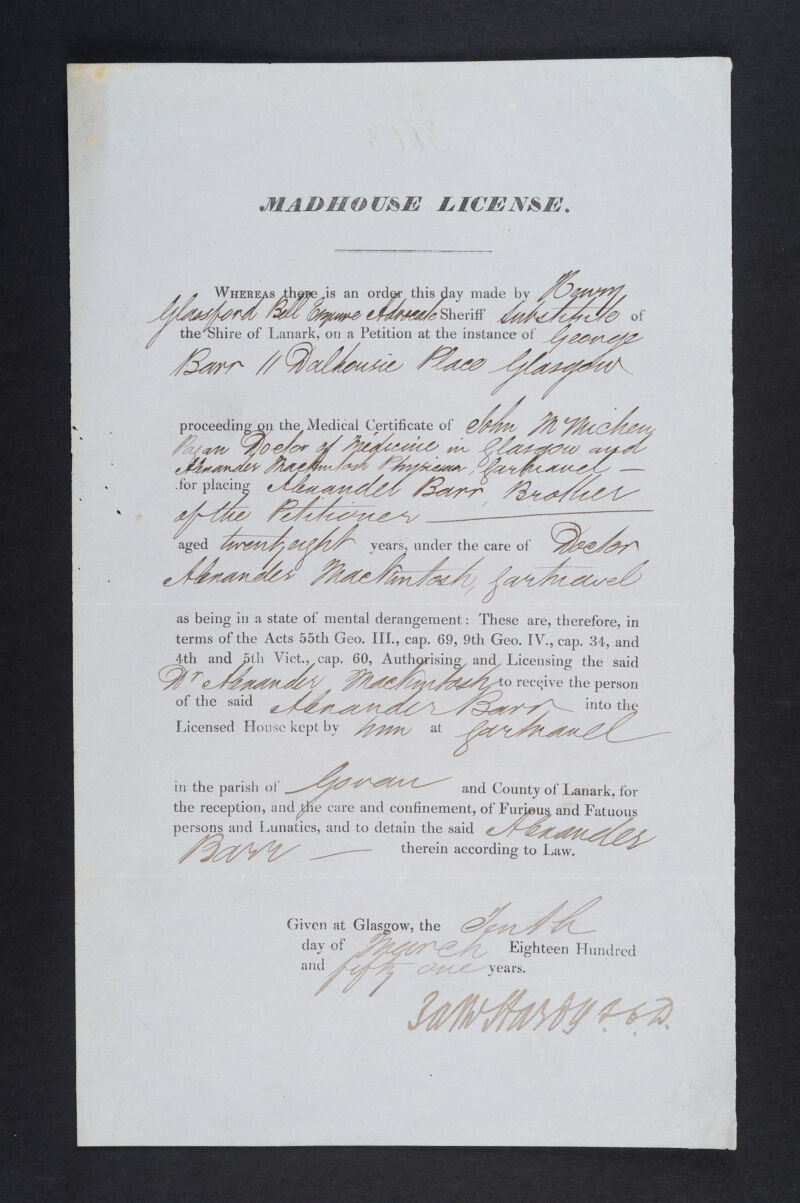 MADHOUSE LICENSE.
WHEREAS there is an order this day made by Henry
Glassford Bell Esquire Advocate Sheriff Substitute of
the Shire of Lanark, on a Petition at the instance of George
Barr 11 Dalhousie Place Glasgow
proceeding on the Medical Certificate of John
Pagan Doctor of Medicine in Glasgow and
Alexander Mackintosh Physician, Gartnavel —
for placing Alexander Barr, Brother
of the Petitioner —
aged twenty eight years, under the care of Doctor
Alexander MacKintosh, Gartnavel
as being in a state of mental derangement: These are, therefore, in
terms of the Acts 55th Geo. III., cap. 69, 9th Geo. IV., cap. 34, and
4th and 5th Vict., cap. 60, Authorising and Licensing the said
Dr Alexander MacKintosh to receive the person
of the said Alexander Barr into the
Licensed House kept by him at Gartnavel
in the parish of Govan and County of Lanark, for
the reception, and the care and confinement, of Furious and Fatuous
persons and Lunatics, and to detain the said Alexander
Barr — therein according to Law.
Given at Glasgow, the Tenth
day of March Eighteen Hundred
and fifty one years.
Hardy